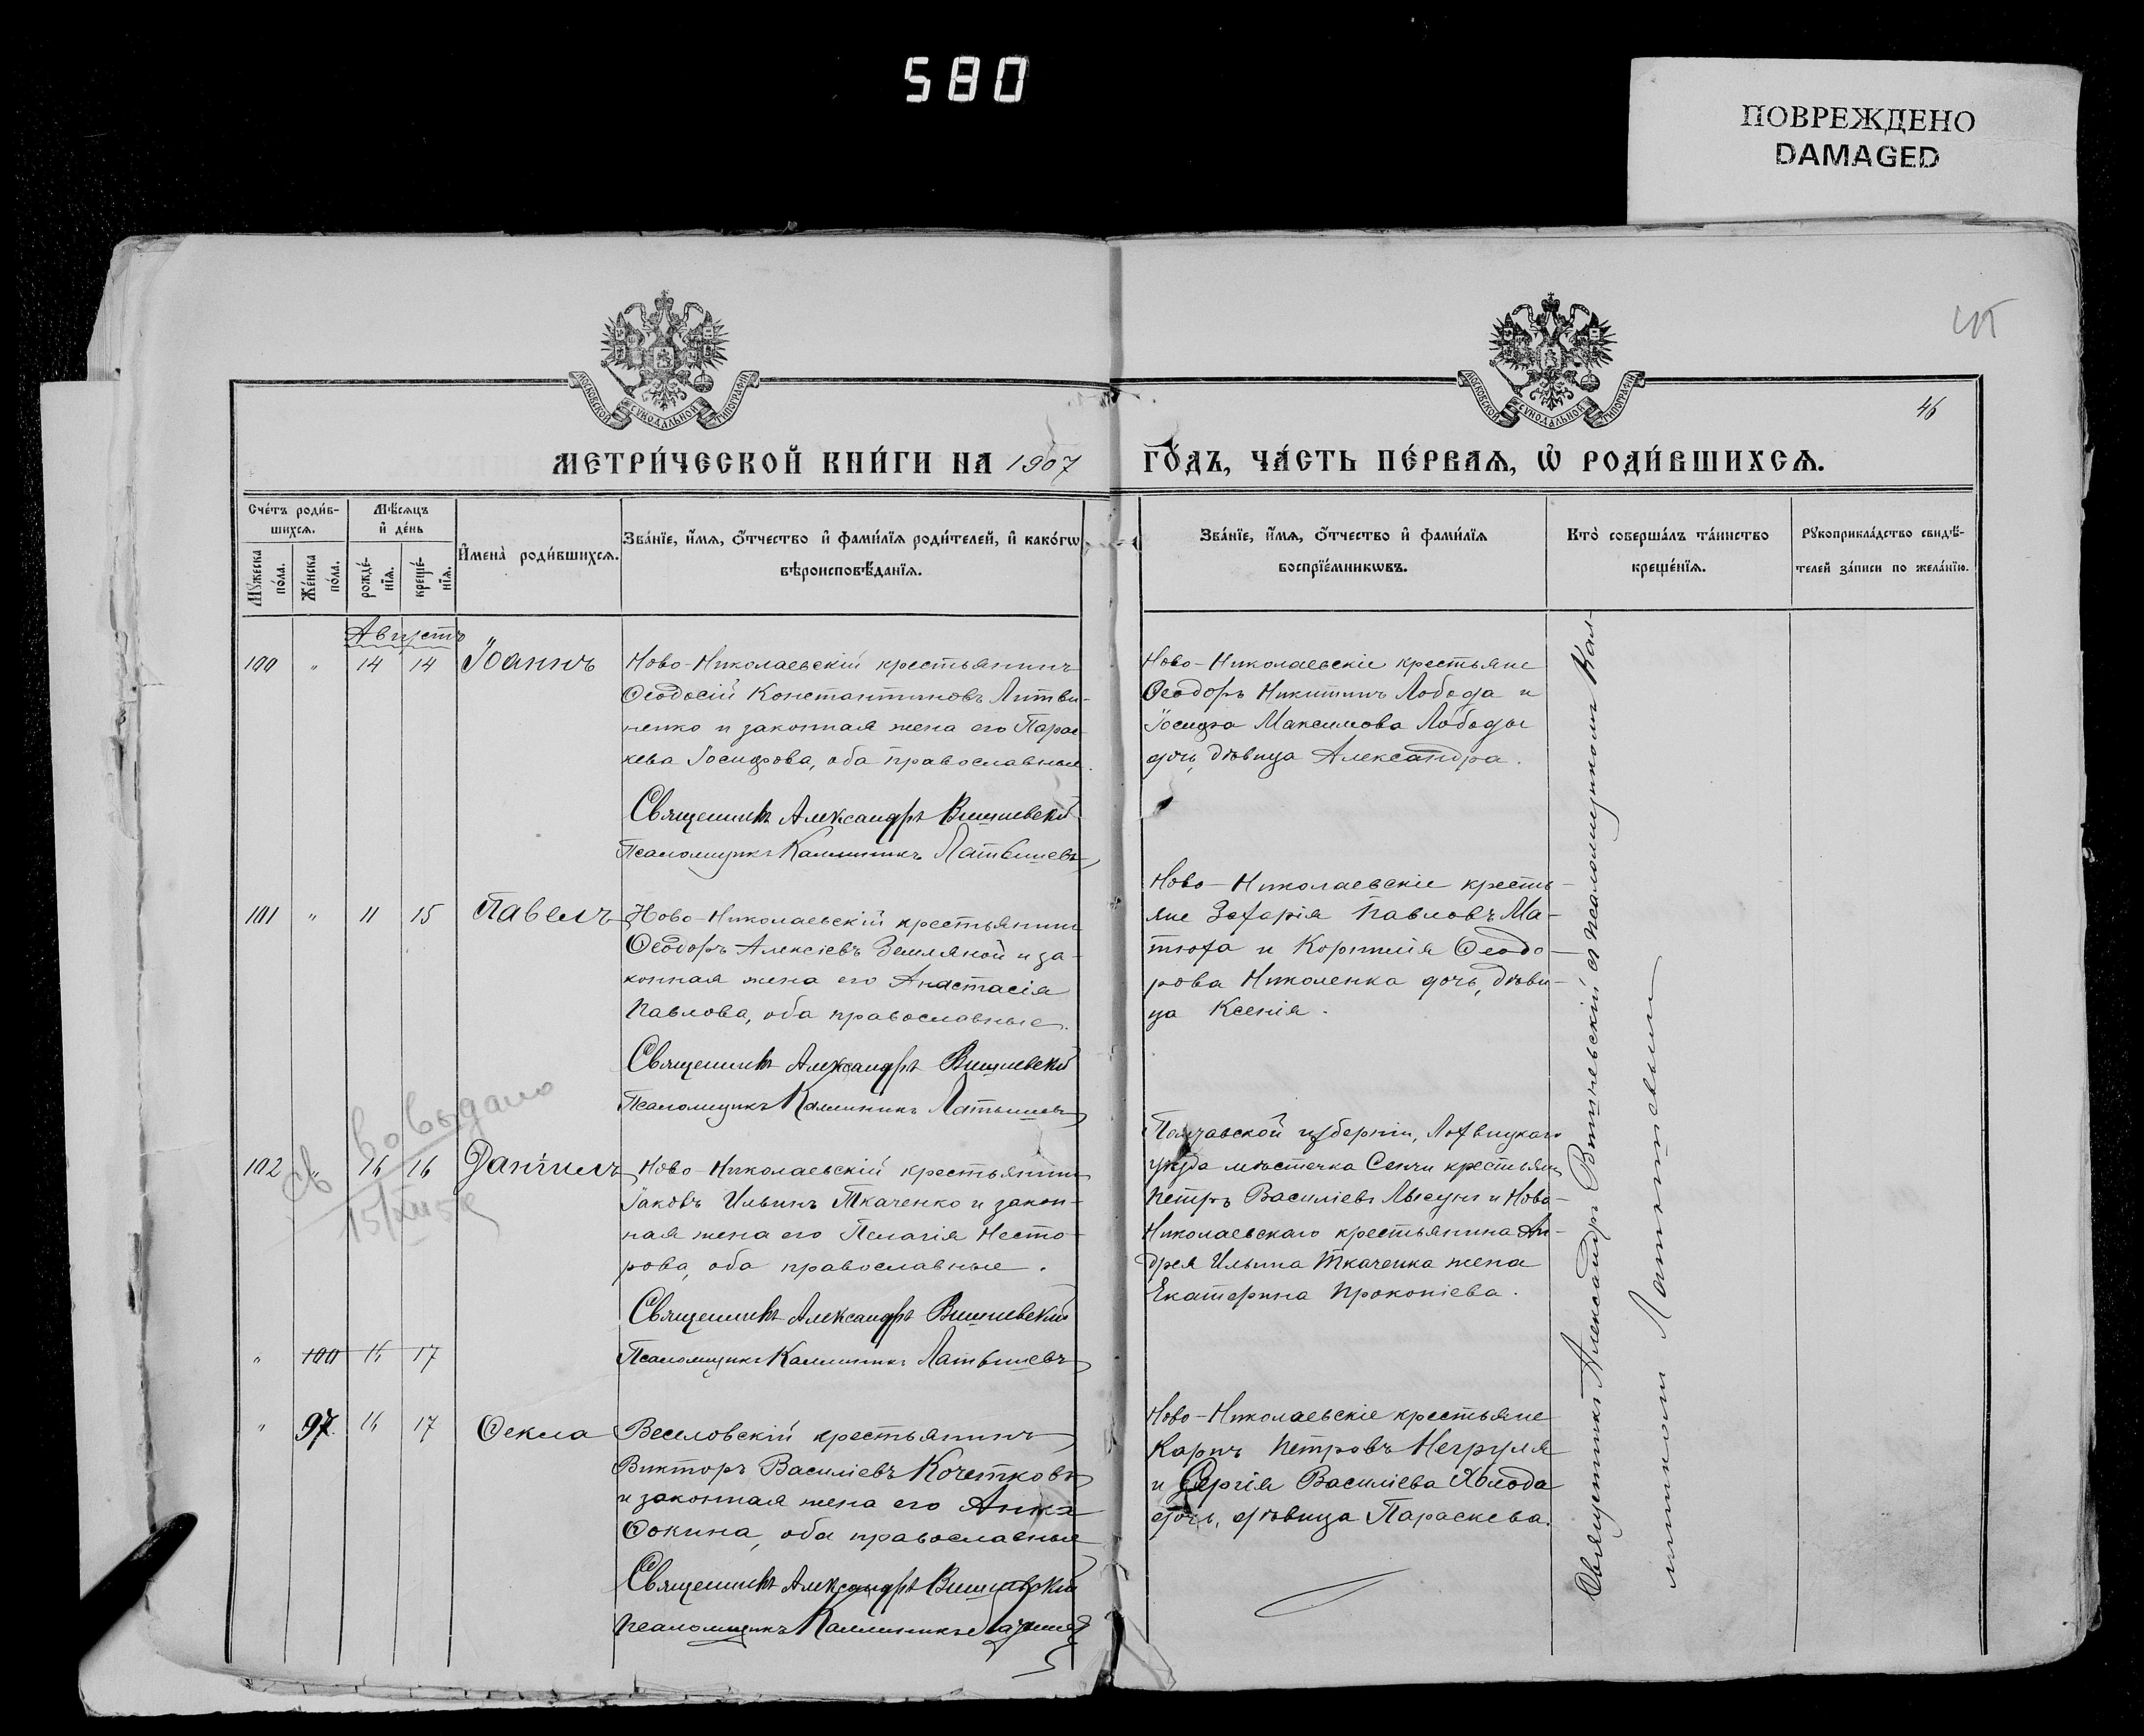 580
ПОВРЕЖДЕНО
DAMAGED
46
МОСКОВСКОЙ СѴНОДАЛЬНОЙ ТИПОГРАФІИ
МОСКОВСКОЙ СѴНОДАЛЬНОЙ ТИПОГРАФІИ
МЕТРИ́ЧЕСКОЙ КНИ́ГИ НА 1907
ГО́ДЪ, ЧА́СТЬ ПЕ́РВАѦ, Ѡ҆ РОДИ́ВШИХСѦ.
Сче́тъ роди́в-
шихсѧ.
Мꙋ́жеска по́ла.
Же́нска по́ла.
Мѣ́сѧцъ
и҆ де́нь
рожде́-нїѧ.
креще́-нїѧ.
И҆мена̀ роди́вшихсѧ.
Зва́нїе, и҆́мѧ, ѻ҆́тчество и҆ фами́лїѧ роди́телей, и҆ како́гѡ
вѣроисповѣ́данїѧ.
Зва́нїе, и҆́мѧ, ѻ҆́тчество и҆ фами́лїѧ
воспрїе́мникѡвъ.
Кто̀ соверша́лъ та́инство
креще́нїѧ.
Рꙋкоприкла́дство свидѣ́-
телей за́писи по жела́нїю.
Августъ
100 " 14 14 Іоаннъ
Ново-Николаевскій крестьянинъ
Ѳеодосій Константиновъ Литви-
ненко и законная жена его Парас-
кева Іосифова, оба православные.
Священникъ Александръ Вишневскій
Псаломщикъ Каллиникъ Латышевъ
Ново-Николаевскіе крестьяне
Ѳеодоръ Никитинъ Лобода и
Іосифа Максимова Лободы
дочь, дѣвица Александра.
101 " 11 15 Павелъ
Ново-Николаевскій крестьянинъ
Ѳеодоръ Алексіевъ Земляной и за-
конная жена его Анастасія
Павлова, оба православные.
Священникъ Александръ Вишневскій
Псаломщикъ Каллиникъ Латышевъ
Ново-Николаевскіе кресть-
яне Захарія Павловъ Ма-
тюха и Корнилія Ѳеодо-
рова Николенка дочь, дѣви-
ца Ксенія.
102 " 16 16 Даніилъ
Ново-Николаевскій крестьянинъ
Іаковъ Ильинъ Ткаченко и закон-
ная жена его Пелагія Несто-
рова, оба православные.
Священникъ Александръ Вишневскій
Псаломщикъ Каллиникъ Латышевъ
Полтавской губерніи, Лохвицкаго
уѣзда мѣстечка Сенчи крестьянинъ
Петръ Василіевъ Лысунъ и Ново-
Николаевскаго крестьянина Ан-
дрея Ильина Ткаченка жена
Екатерина Прокопіева.
" 100 16 17
" 97. 16 17 Ѳекла
Веселовскій крестьянинъ
Викторъ Василіевъ Кочетковъ
и законная жена его Анна
Ѳокина, оба православные
Священникъ Александръ Вишневскій
Псаломщикъ Каллиникъ Латышевъ
Ново-Николаевскіе крестьяне
Карпъ Петровъ Негруля
и Сергія Василіева Холода
дочь, дѣвица Параскева.
Священникъ Александръ Вишневскій съ псаломщикомъ Кал-
линикомъ Латышевымъ